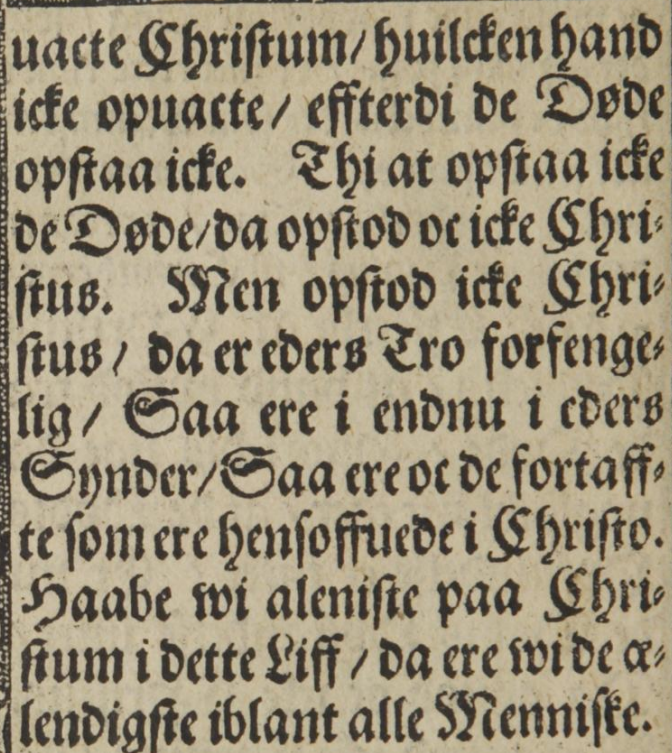 uacte Christum/ huilcken hand
icke opuacte/ effterdi de Døde
opstaa icke. Thi at opstaa icke
de Døde/ da opstod oc icke Chri-
stus. Men opstod icke Chri-
stus/ da er eders Tro forfenge-
lig/ Saa ere i endnu i eders
Synder/ Saa ere oc de fortaff-
te som ere hensoffuede i Christo.
Haabe wi aleniste paa Chri-
stum i dette Liff/ da ere wi de æ-
lendigste iblant alle Menniske.